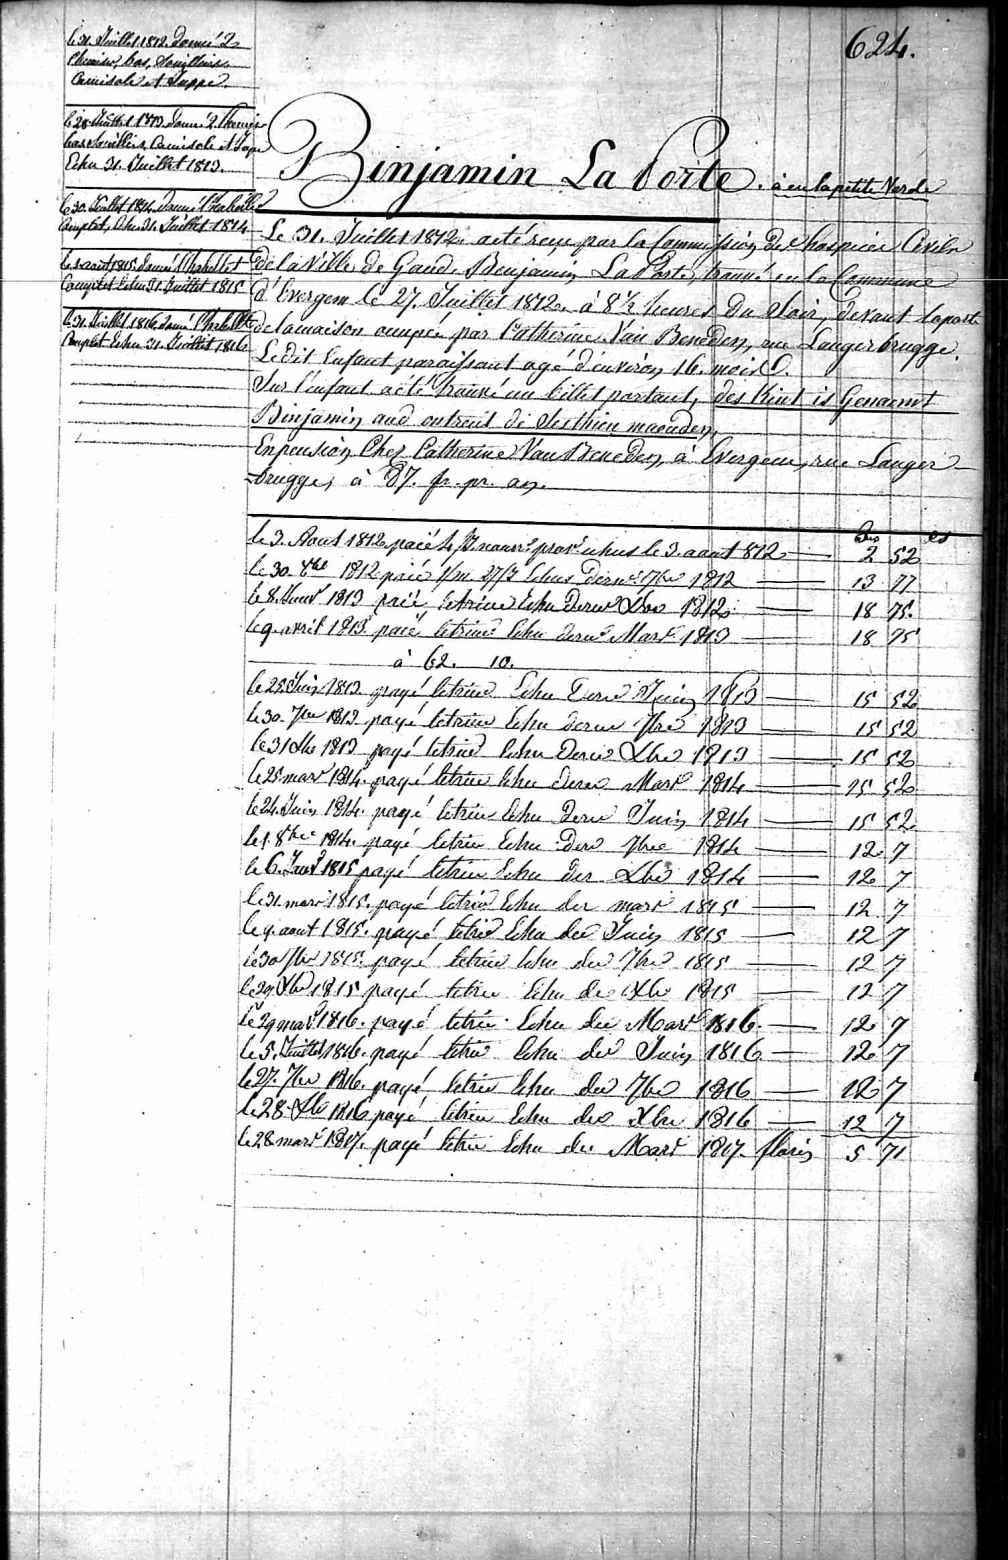 624.
le 31. Juillet 1812. donné 2
Chemises, bas, Souilliers
Camisole et Juppe.
le 28 Juillet 1813. donné 2. Chemises
bas souilliers, Camisole et Jupe
Echu 31. Juillet 1813.
le 30. Juillet 1814. donné l'habillet
Complet, Echu 31. Juillet 1814
le août 1815. donné l'habillet
Complet Echu 31. Juillet 1815
le 31. Juillet 1816. donné l'habillet
Complet Echu 31. Juillet 1816
Binjamin La Porte. à eu la petite Verole
Le 31. Juillet 1812. a été reçu par la Commission des hospices Civils
de la Ville de Gand, Benjamin La Porte, trouvé en la Commune
d'Evergem le 27. Juillet 1812. à 8 1/2 heures du Soir, devant la porte
de la maison occupée par Catherine Van Beneden, rue Langerbrugge.
Le dit Enfant paraissant agé d'environ 16. mois.
Sur l'enfant a été trouvé un billet portant, des Kint is Genaemt
Binjamin and
En pension Chez Catherine Van Beneden, à Evergem, rue Langer-
brugge, à 87. fr. pr. an.
le 3. Aout 1812. paié le 3. aout 812 2 52
le 30. 1812 paié 1812 13 77
le 8. Janvr 1813 paié letrim Echu Xbre 1812 18 75.
le 9. avril 1813 paié letrim Echu Mars 1813 18 75
à 62. 10.
le 25. Juin 1813. payé letrim Echu Juin 1813 15 52
le 30. 7bre 1813 payé letrim Echu 7bre 1813 15 52
le 31 Xbre 1813 payé letrim Echu Xbre 1813 15 52
le 25 mars 1814. payé letrim Echu Mars 1814 15 52
le 24. Juin 1814. payé letrim Echu Juin 1814 15 52
le 1. 8bre 1814. payé letrim Echu 7bre 1814 12 7
le 6. Janv 1815 payé letrim Echu der Xbre 1814 12 7
le 31. mars 1815. payé letrim Echu der mars 1815 12 7
le 4. aout 1815. payé letrim Echu der Juin 1815 12 7
le 30 7bre 1815. payé letrim Echu der 7bre 1815 12 7
le 29 Xbre 1815 payé letrim Echu der Xbre 1815 12 7
le 29 mars 1816. payé letrim Echu der Mars 1816. 12 7
le 5. Juillet 1816. payé letrim Echu der Juin 1816 12 7
le 27. 7bre 1816. payé letrim Echu der 7bre 1816 12 7
le 28 Xbre 1816 payé letrim Echu der Xbre 1816 12 7
le 28 mars 1817. payé letrim Echu der Mars 1817. florins 5 71